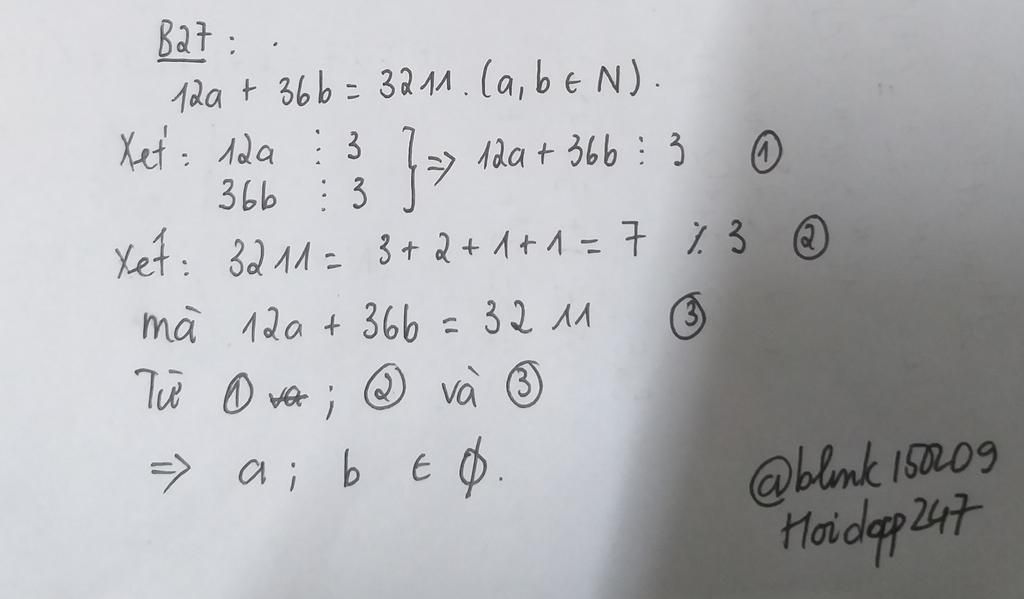 B27 : .
12a + 36b = 3211. (a, b ∈ N).
Xét: 12a ⋮ 3 } => 12a + 36b ⋮ 3 ①
36b ⋮ 3
Xét: 3211 = 3 + 2 + 1 + 1 = 7 ⋮̸ 3 ②
mà 12a + 36b = 3211 ③
Từ ① ; ② và ③
=> a ; b ∈ ∅.
@blmk150209
Hoidap247